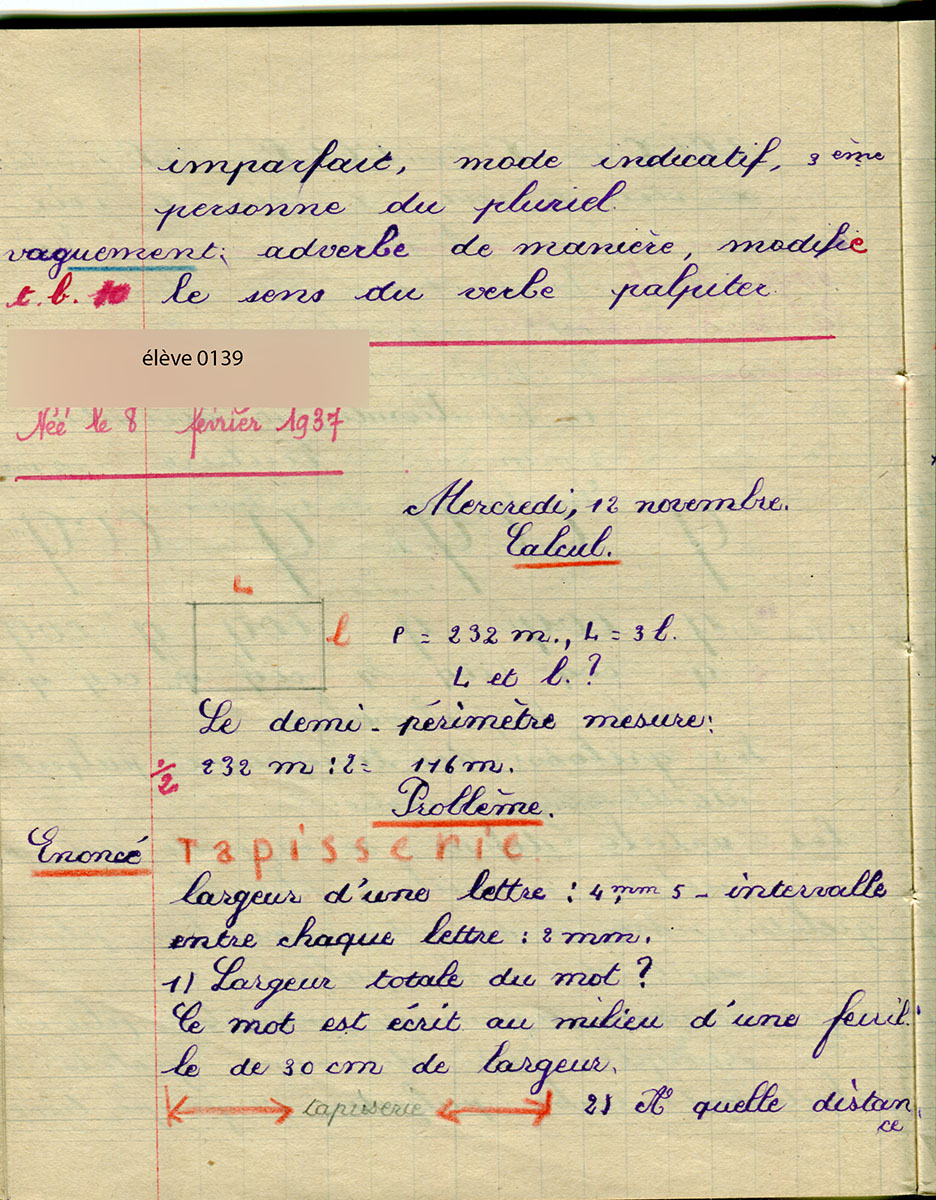 imparfait, mode indicatif, 3 ème
personne du pluriel
vaguement: adverbe de manière, modifie
t. b. le sens du verbe palpiter
élève 0139
Née le 8 février 1937
Mercredi, 12 novembre.
Calcul.
L
l P = 232 m., L = 3 l.
L et l.?
Le demi-périmètre mesure:
232 m : 2 = 116 m.
Problème.
Enoncé Tapisserie
largeur d'une lettre : 4,mm 5 - intervalle
entre chaque lettre : 2 mm.
1) Largeur totale du mot ?
Ce mot est écrit au milieu d'une feuil
le de 30 cm de largeur.
tapisserie 2) A quelle distan
ce